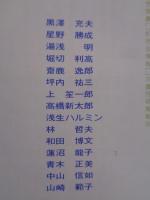 黒澤 充夫
星野 勝成
湯浅 明
堀切 利高
齋鹿 逸郎
坪内 祐三
上 笙一郎
高橋新太郎
浅生ハルミン
林 哲夫
和田 博文
蓮沼 龍子
青木 正美
中山 信如
山崎 範子